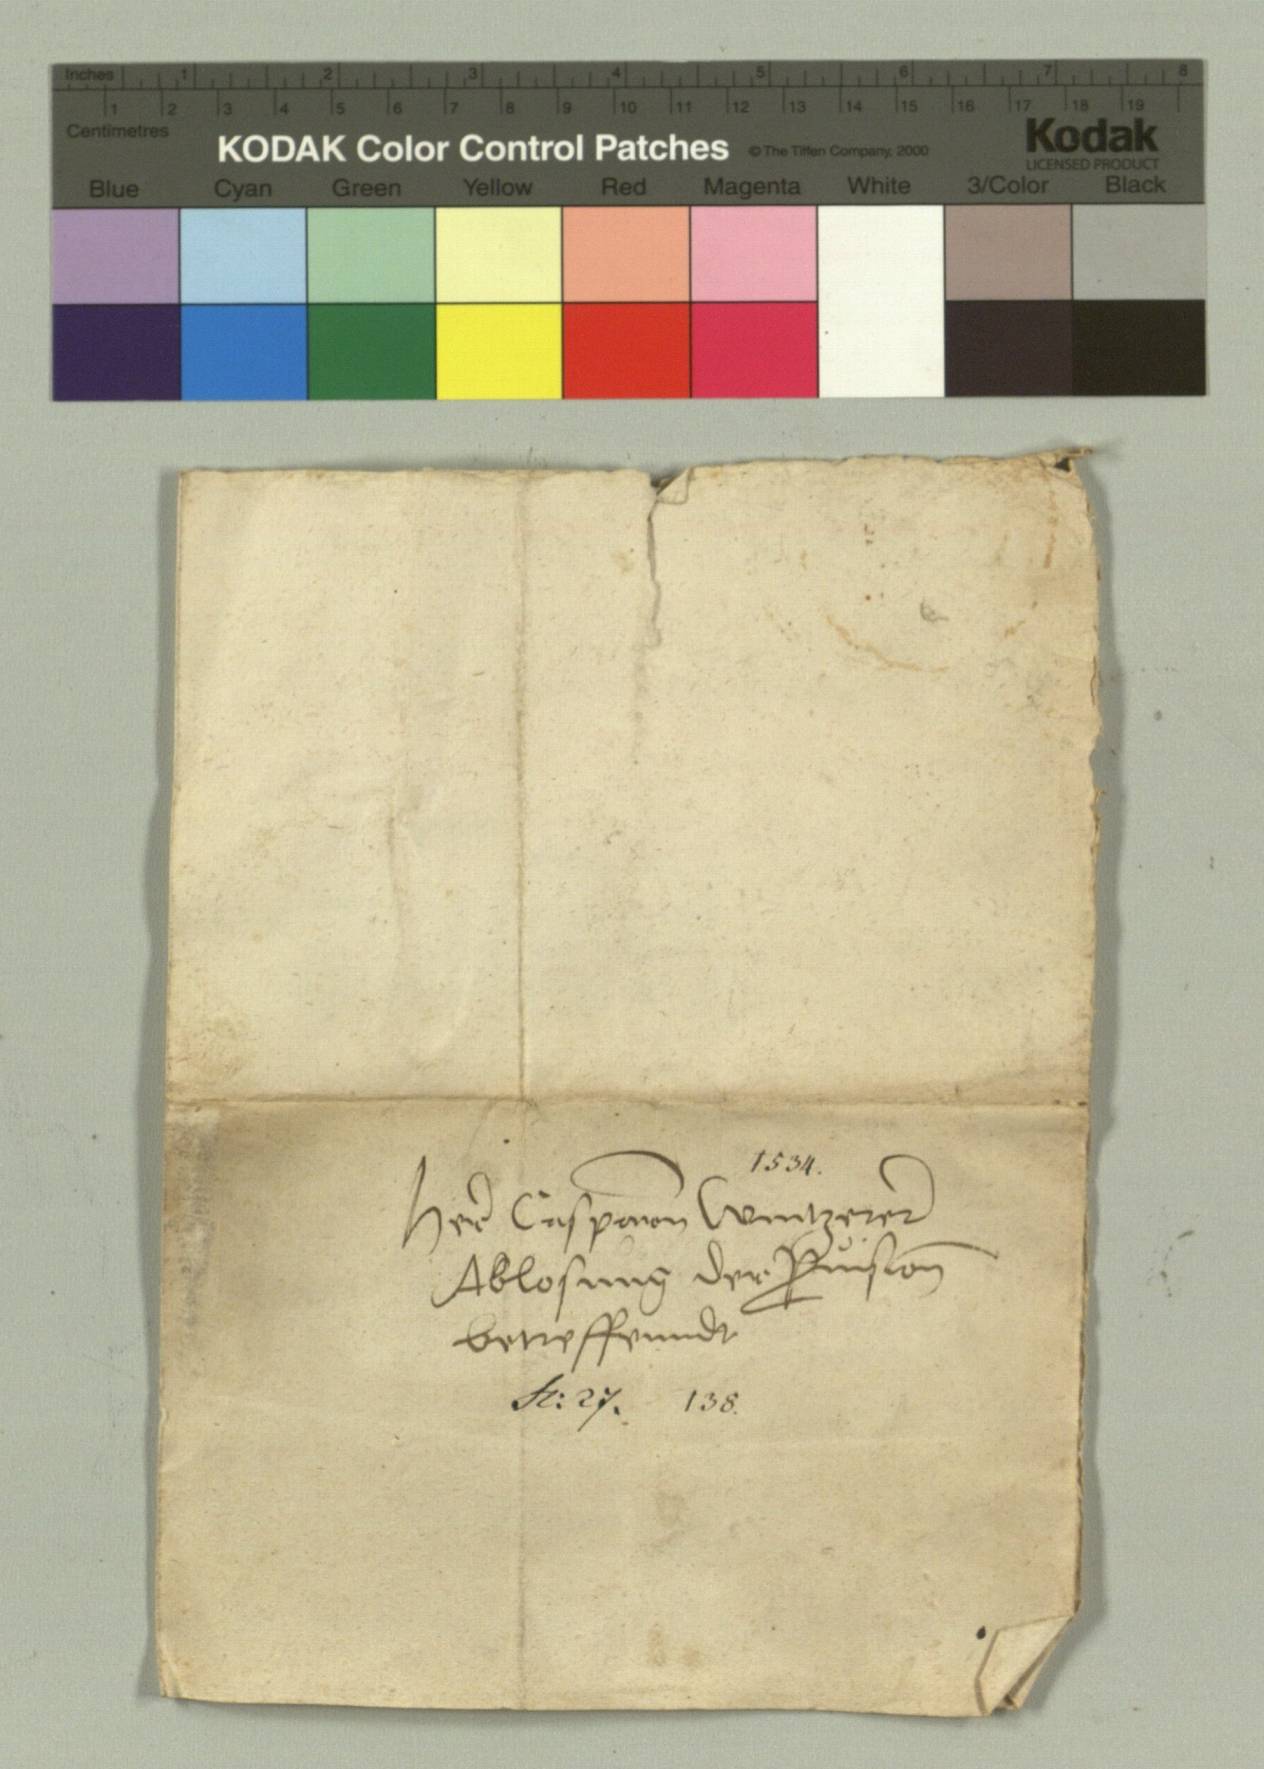 Inches 1 2 3 4 5 6 7 8
1 2 3 4 5 6 7 8 9 10 11 12 13 14 15 16 17 18 19
Centimetres
KODAK Color Control Patches © The Tiffen Company, 2000
Kodak
LICENSED PRODUCT
Blue Cyan Green Yellow Red Magenta White 3/Color Black
1534.
Herr Casparon Wintzerer
Ablosung der
betreffenndt
27. 138.